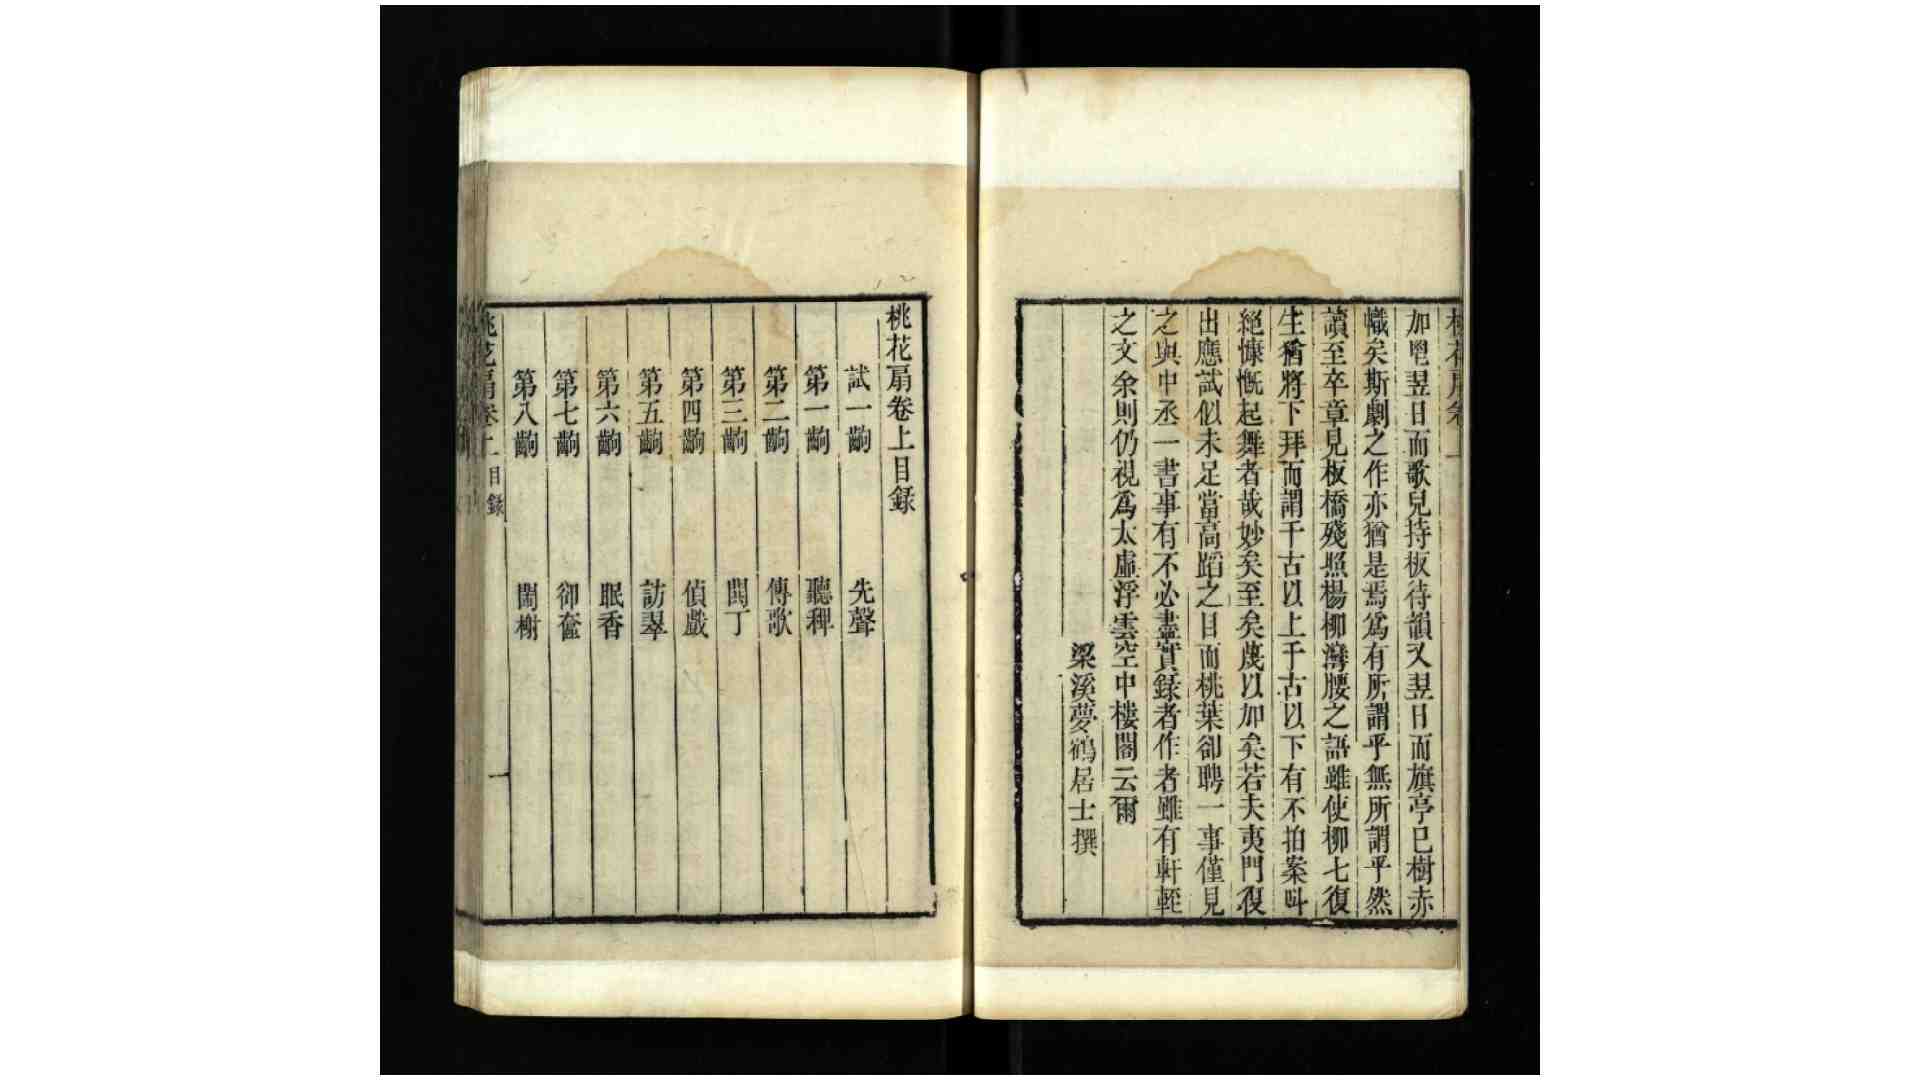 加咢翌日而歌兒持板待韻又翌日而旗亭已樹赤
幟矣斯劇之作亦猶是焉爲有所謂乎無所謂乎然
讀至卒章見板橋殘照楊柳灣腰之語雖使柳七復
生猶將下拜而謂千古以上千古以下有不拍案叫
絕慷慨起舞者哉妙矣至矣蔑以加矣若夫夷門復
出應試似未足當高蹈之目而桃葉卻聘一事僅見
之與中丞一書事有不必盡實錄者作者雖有軒輊
之文余則仍視爲太虛浮雲空中樓閣云爾
梁溪夢鶴居士撰
桃花扇卷上目錄
試一齣 先聲
第一齣 聽稗
第二齣 傳歌
第三齣 鬨丁
第四齣 偵戲
第五齣 訪翠
第六齣 眠香
第七齣 卻奩
第八齣 鬧榭
桃花扇卷上 目錄 一